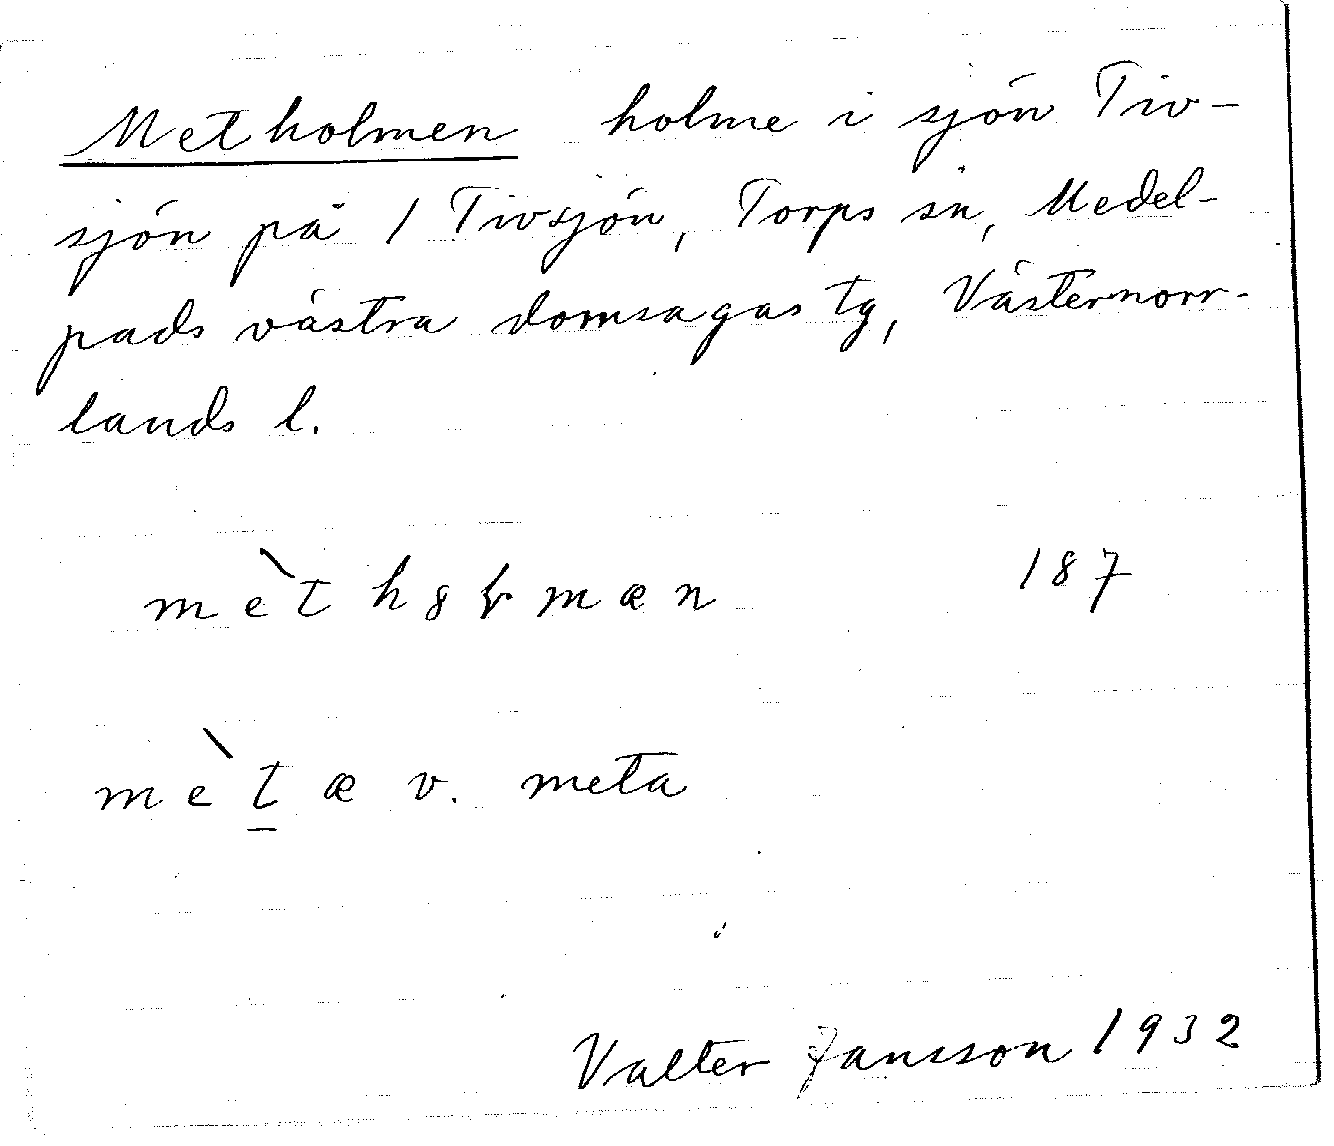 Metholmen holme i sjön Tiv-
sjön på 1 Tivsjön, Torps sn, Medel-
pads västra domsagas tg, Västernorr-
lands l.
mèt h8ɽmæn 187
mètæ v. meta
Valter Jansson 1932